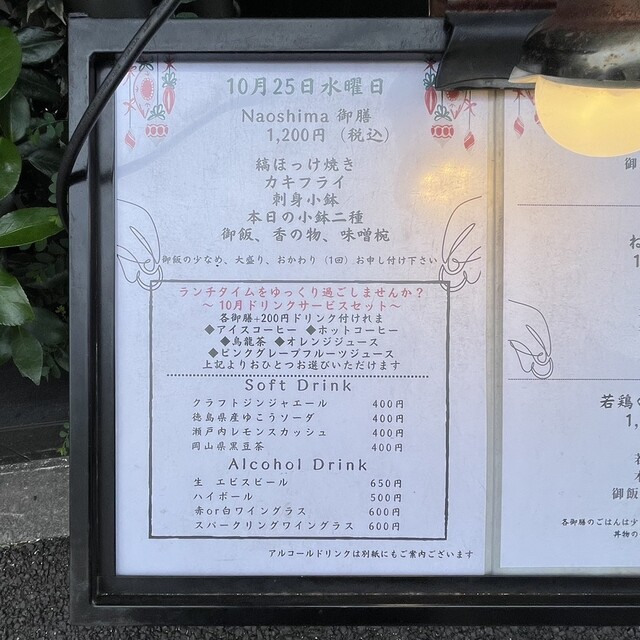 10月25日水曜日
Naoshima 御膳
1,200円 (税込)
縞ほっけ焼き
カキフライ
刺身小鉢
本日の小鉢二種
御飯、香の物、味噌椀
御飯の少なめ、大盛り、おかわり (1回) お申し付け下さい
ランチタイムをゆっくり過ごしませんか?
～10月ドリンクサービスセット～
各御膳+200円ドリンク付けれま
◆アイスコーヒー ◆ホットコーヒー
◆烏龍茶 ◆オレンジジュース
◆ピンクグレープフルーツジュース
上記よりおひとつお選びいただけます
Soft Drink
クラフトジンジャエール 400円
徳島県産ゆこうソーダ 400円
瀬戸内レモンスカッシュ 400円
岡山県黒豆茶 400円
Alcohol Drink
生 エビスビール 650円
ハイボール 500円
赤or白ワイングラス 600円
スパークリングワイングラス 600円
アルコールドリンクは別紙にもご案内ございます
御
ね
1
若鶏
1,
御飯
各御膳のごはんは少
丼物の